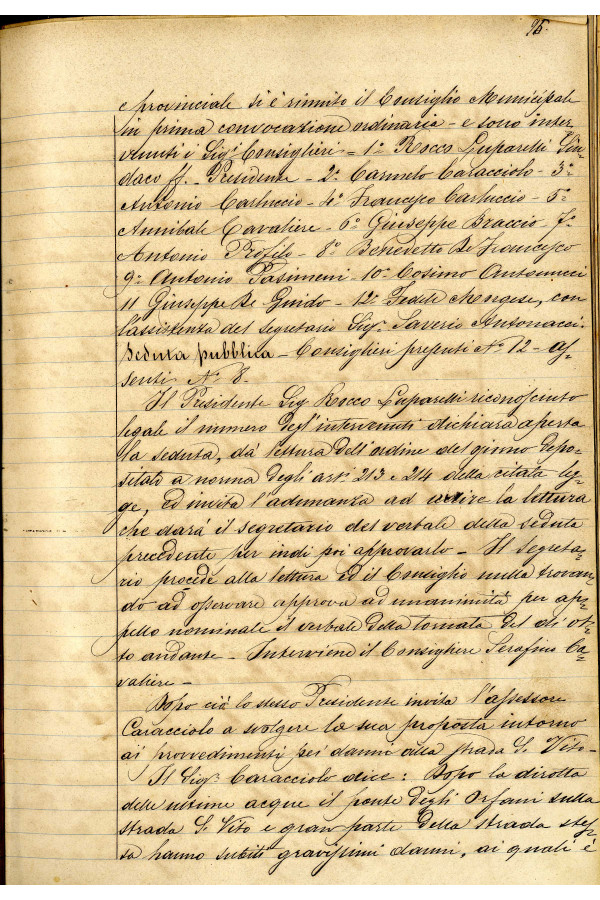 95.
e provinciale si è riunito il Consiglio Municipale
in prima convocazione ordinaria - e sono inter-
venuti i Sigri Consiglieri - 1o Rocco Luparelli Sin-
daco ff. Presidente - 2o Carmelo Caracciolo - 3o
Antonio Carluccio - 4o Francesco Carluccio - 5o
Annibale Cavaliere - 6o Giuseppe Braccio - 7o
Antonio Profilo - 8o Benedetto De Francesco
9o Antonio Pasimeni - 10o Cosimo Antonucci
11 Giuseppe De Guido - 12o Fedele Morgese, con
l'assistenza del segretario Sigr. Saverio Antonacci.
Seduta pubblica - Consiglieri presenti No 12 - As-
senti No 8.
Il Presidente Sig Rocco Luparelli riconosciuto
legale il numero degl'intervenuti dichiara aperta
la seduta, dà lettura dell'ordine del giorno depo-
sitato a norma degli arti 213 e 214 della citata leg-
ge, ed invita l'adunanza ad udire la lettura
che darà il segretario del verbale della seduta
precedente per indi poi approvarlo - Il Segreta-
rio procede alla lettura ed il Consiglio nulla trovan-
do ad osservare approva ad unanimità per ap-
pello nominale il verbale della tornata del dì ot-
to andante - Interviene il Consigliere Serafino Ca-
valiere -
Dopo ciò lo stesso Presidente invita l'assessore
Caracciolo a svolgere la sua proposta intorno
ai provvedimenti pei danni alla strada S. Vito -
Il Sigr. Caracciolo dice: Dopo la dirotta
delle ultime acque il ponte degli Orfani sulla
strada S. Vito e gran parte della strada stes-
sa hanno subiti gravissimi danni, ai quali è